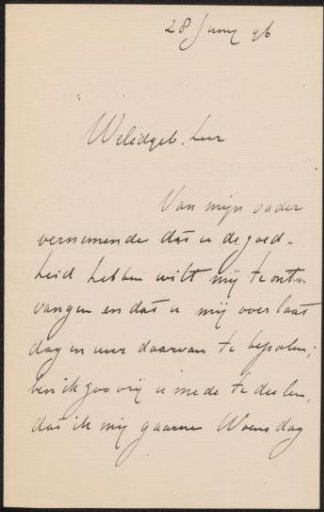 28 Juny 96
Weledgeb. Heer
Van mijn vader
vernemende dat u de goed-
heid hebben wilt mij te ont-
vangen en dat u mij overlaat
dag en uur daarvan te bepalen,
ben ik zoo vrij u mede te deelen,
dat ik mij gaarne Woensdag